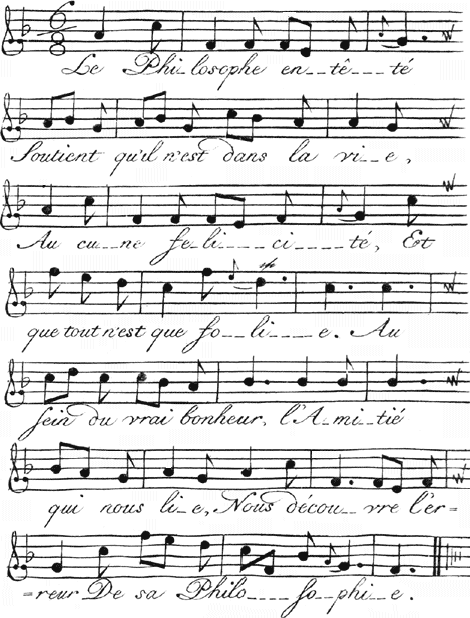 6
8
Le Phi_losophe en__tê___té
Soutient qu'il n'est dans la vi__e,
Au cu__ne fe_li____ci____té, Et
que tout n'est que fo__li___e. Au
sein du vrai bonheur, l'A_mi_tié
qui nous li_e, Nous décou__vre l'er=
=reur De sa Philo___so_phie.